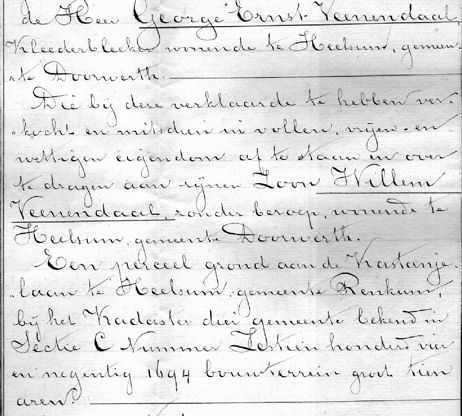 de Heer George Ernst Veenendaal,
Kleederbleeker wonende te Heelsum, gemeen-
te Doorwerth.
Die bij deze verklaarde te hebben ver-
kocht en mitsdien in vollen, vrijen en
wettigen eigendom af te staan en over
te dragen aan zijnen Zoon Willem
Veenendaal, zonder beroep, wonende te
Heelsum, gemeente Doorwerth.
Een perceel grond aan de Kastanje-
laan te Heelsum, gemeente Renkum,
bij het Kadaster dier gemeente bekend in
Sectie C Nummer Zestien honderd vier
en negentig 1694 bouwterrein groot tien
aren.